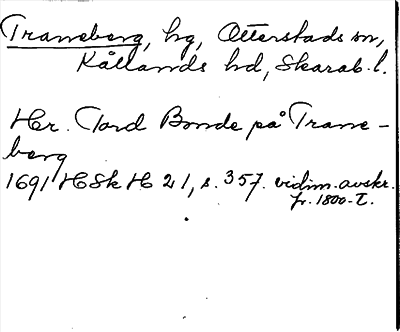 Traneberg, hg, Otterstads sn,
Kållands hd, Skarab. l.
Her. Tord Bonde på Trane-
berg
1691 HSkH 21, s. 357. vidim. avskr.
fr. 1800-t.